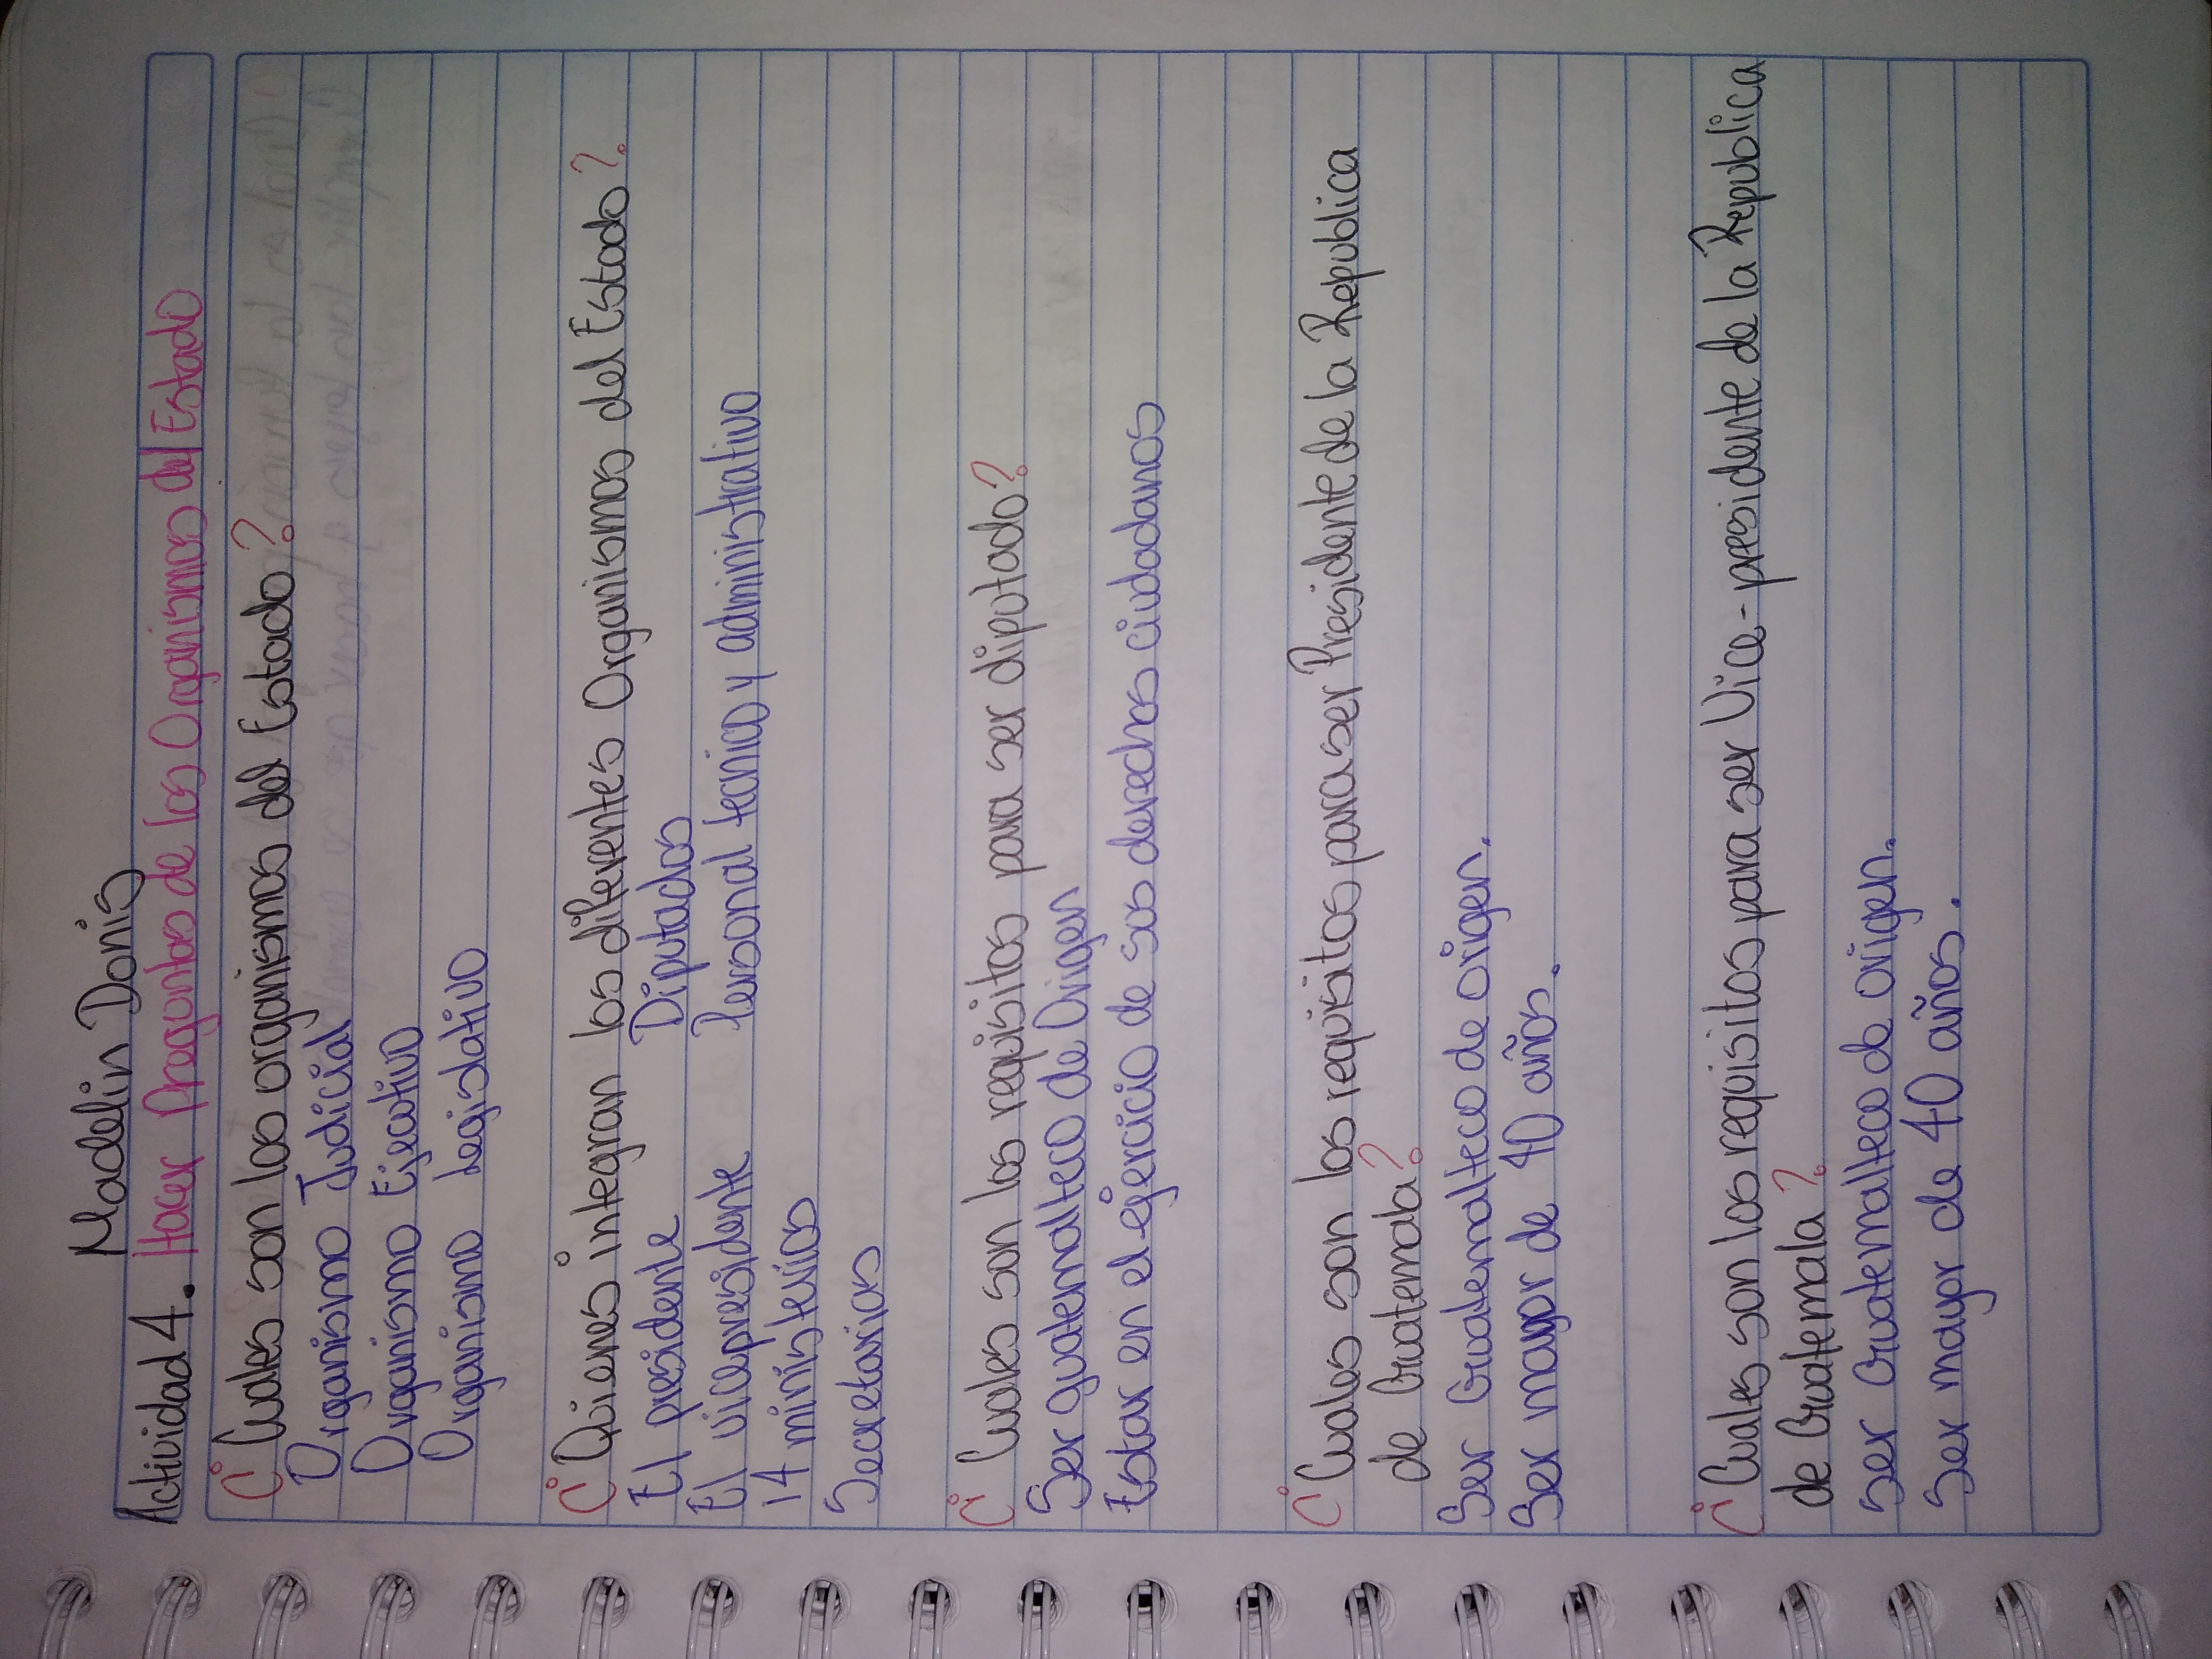 Madelin Donis
Actividad 4. Hacer Preguntas de los Organismos del Estado
¿Cuales son los organismos del Estado?
Organismo Judicial
Organismo Ejecutivo
Organismo Legislativo
¿Quienes integran los diferentes Organismos del Estado?
El presidente Diputados
El vicepresidente Personal tecnico y administrativo
14 ministerios
Secretarias
¿Cuales son los requisitos para ser diputado?
Ser guatemalteco de Origen
Estar en el ejercicio de sos derechos ciudadanos
¿Cuales son los requisitos para ser Presidente de la Republica
de Guatemala?
Ser Guatemalteco de origen.
Ser mayor de 40 años.
¿Cuales son los requisitos para ser Vice-presidente de la Republica
de Guatemala?
Ser Guatemalteco de origen.
Ser mayor de 40 años.